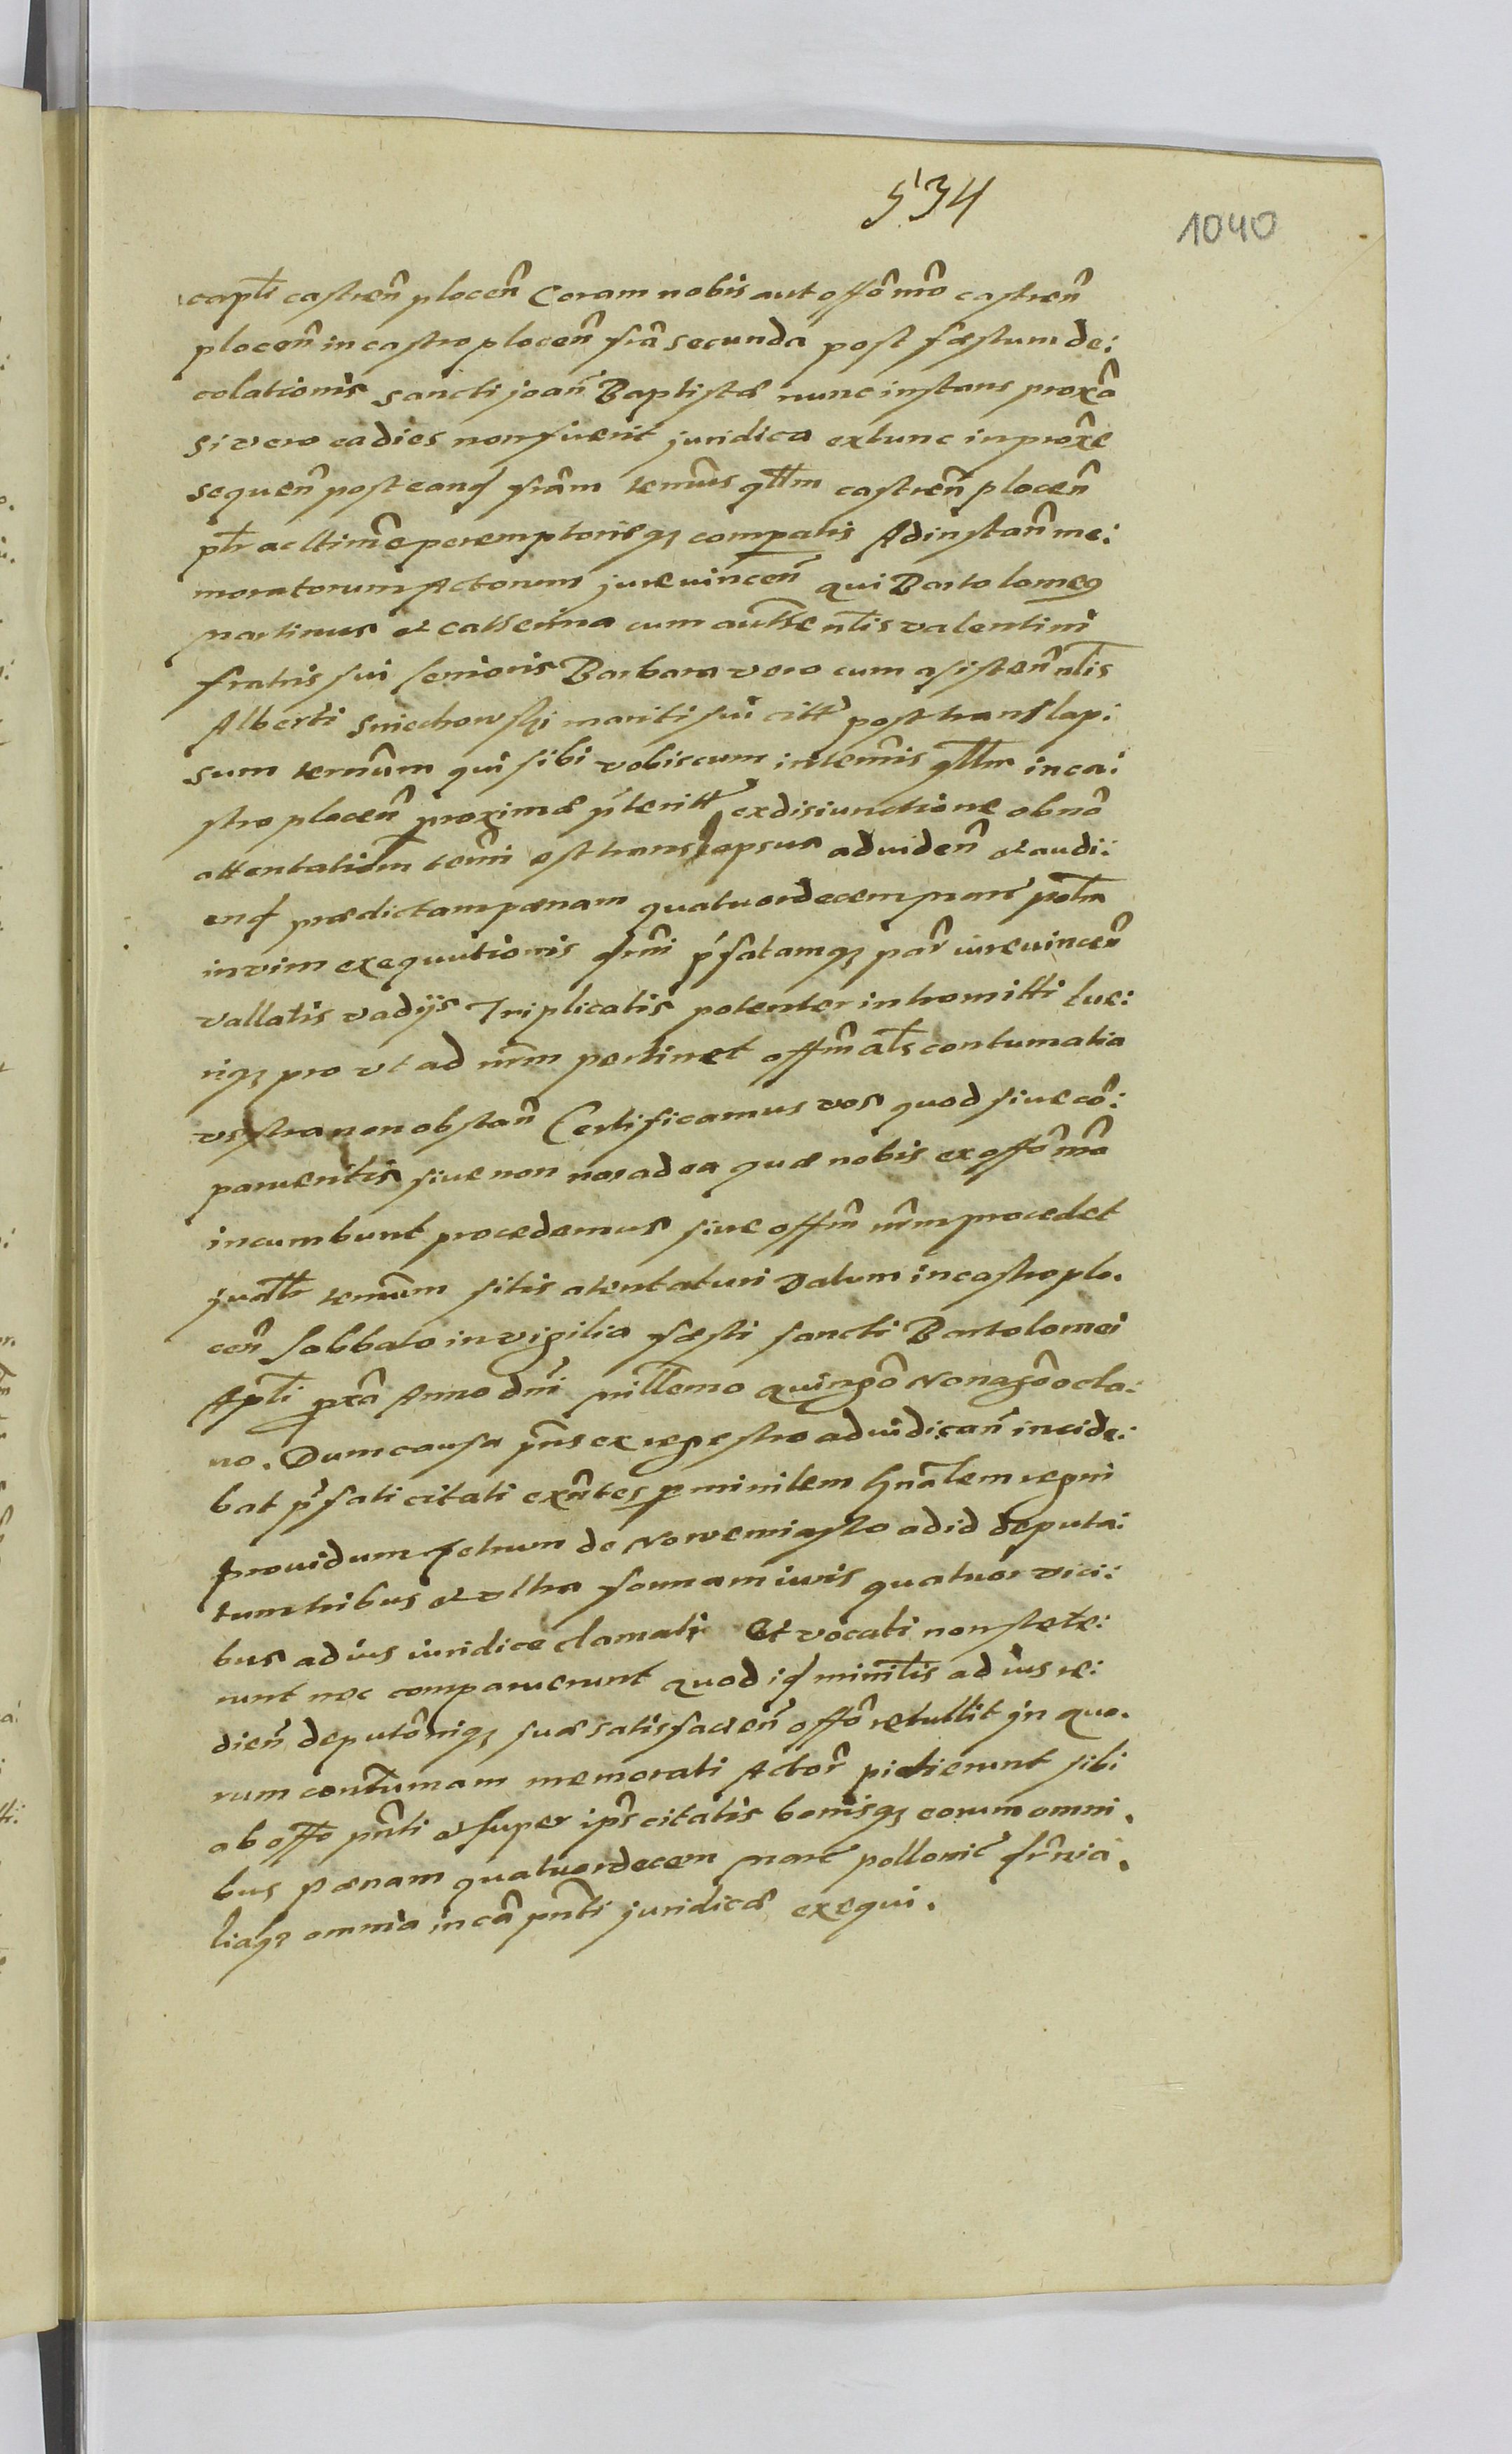 534
1040
capłi castreñ ploceñ Coram nobis aut offô nrô castreñ
ploceñ in castro ploceñ friâ secunda post fæstum de:
colationis sancti joañ Baptistæ nunc instans proxâ
si vero ea dies non fuerit juridica extunc in proxê
sequeñ post eand friâm termîs qllm castreñ ploceñ
ptr ac ltimê peremptorieq comparatis Ad instañ me:
moratorum Actorum jurevinceñ qui Bartolomeq
Martinus et catherina cum authentlis valentini
fratris sui senioris Barbara vero cum asisteñ alis
Alberti Sniechowsqi mariti sui citt post translap:
sum termûm qui sibi vobiscum in termîs qllm in ca:
stro ploceñ proximæ pˈteritt ex disiunctione obnô
attentatiôm termî est translapsus ad videñ et audi:
end prædictam pœnam quatuordecem marc połm
in vim exequutionis firmî pˈfatamq par jurevinceñ
vallatis vadijs Triplicatis potenter intromitti lue:
riq pro vt ad nrm pertinet offm als contumatia
vestra non obstañ Certificamus vos quod siue cô:
parueritis siue non nos ad ea quæ nobis ex offô nrô
incumbunt procedemus siue offm nrm procedet
jvdllr termûm sitis atentaturi Datum in castro plo.
ceñ Sabbato in vigilia fæsti sancti Bartolomei
Apłi pxâ Anno dñi millemo quingô Nonagô octa:
uo. Dum causa pñs ex regestro ad iudicañ incide:
bat pˈfati citati exñtes p minilem gñalem regni
prouidum petrum de Nowemiasto ad id deputa:
tum tribus et vltra formam iuris quatuor vici:
bus ad ius iuridice clamati Et vocati non stete:
runt nec comparuerunt quod id minilis ad ius re:
dieñ deputôniq suæ satisfacieñ offô retullit jn quo.
rum contumam memorati Actor pietierunt sibi
ab offo pñti et super ipˈs citatis bonisq eorum omni.
bus pœnam quatuordecem marc pollonic
liaq omnia in câ pñti juridicæ exequi.